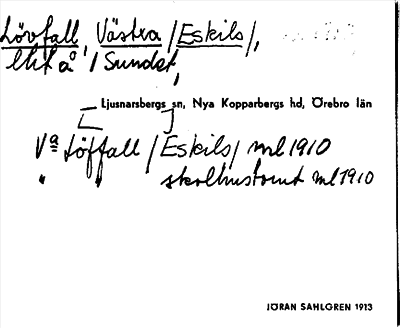 Lövfall, Västra /Eskils/,
lht å /Sundet,
Ljusnarsbergs sn, Nya Kopparbergs hd, Örebro län
Va Löffall /Eskils/ ml 1910
" " skolhustomt ml 1910
JÖRAN SAHLGREN 1913